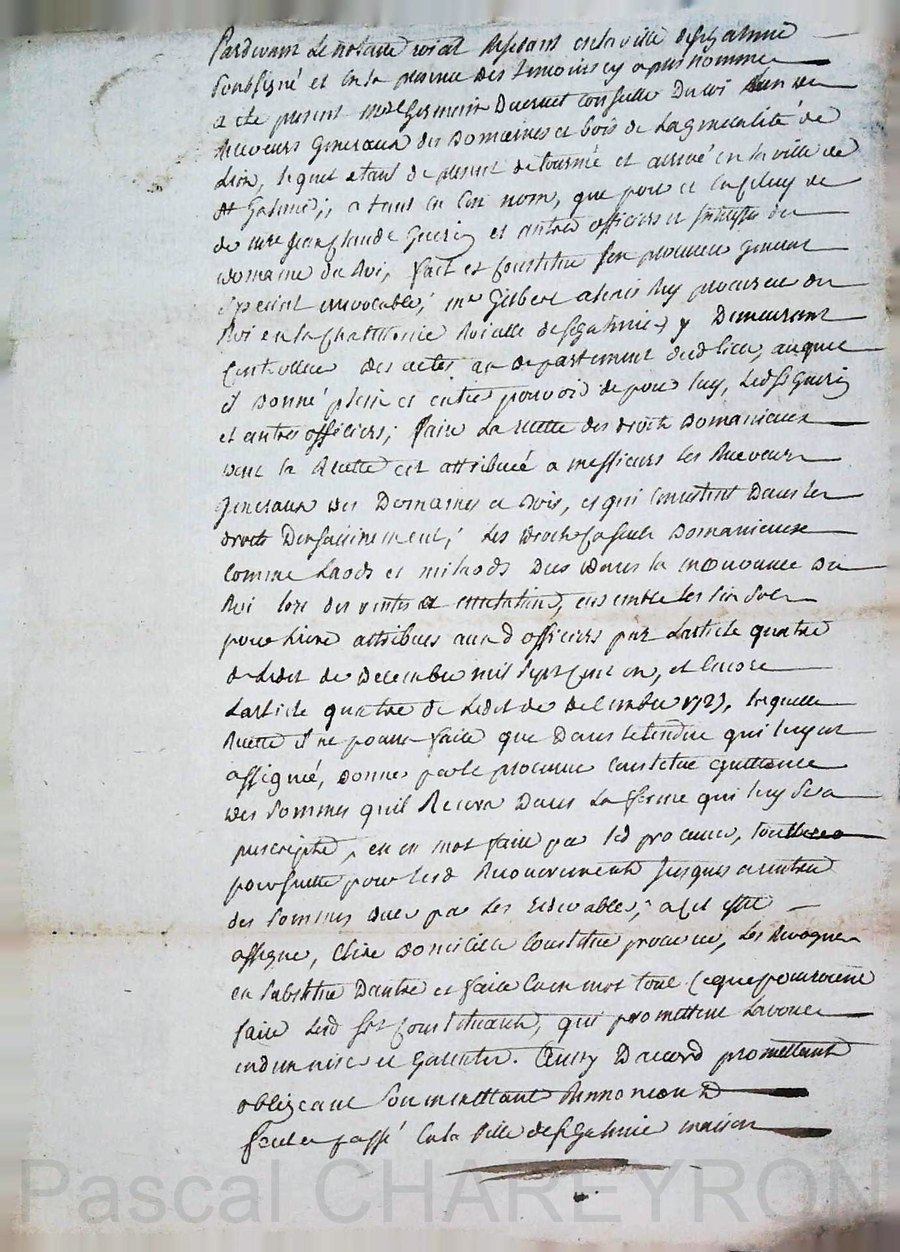 Pardevant Le notaire roial Residant en la ville de st galmie
soussigné et en la presence des temoins cy apres nommes
a ete present mre Germain Ducruet conseiller Du roi Lun des
Receveurs Generaux des Domaines et bois de La generalité de
Lion, lequel etant de present de tournée et arrivé en la ville de
st Galmie; a tant en son nom, que pour et en celuy de
de mre jean Claude Guerin et autres officiers et
Domaine du Roi, fait et constitue son procureur general
special irrevocable, me Gilbert procureur du
Roi en la Chattelenie Roialle de st galmie y Demeurant
Controlleur des actes au departement dud lieu, auquel
il Donne plein et entier pouvoir de pour luy, Led sr Guerin
et autres officiers, faire La recette des droits Domaniaux
dont la Recette est attribuée a messieurs les Receveurs
generaux des Domaines et bois, et qui consistent Dans les
droits Densaisinement, Les droits casuels Domaniaux
comme Laods et milaods Dus dans la mouvance du
Roi lors des ventes et mutations, ensemble les six sols
pour livre attribues auxd officiers par Larticle quatre
de Ledit de Decembre mil sept cent un, et encore
Larticle quatre de Ledit de decembre 1727, laquelle
Recette il ne pourra faire que Dans letendue qui luy est
assignée, donner par le procureur constitue quittance
des sommes quil Recevra Dans La forme qui luy sera
prescripte, en un mot faire par led procureur, touttes
poursuitte pour lesd Recouvrements jusques a rentree
des sommes dues par Les redevables, a cet effet
assigner, elire domicille constituer procureur, Les Revoquer
en substituer Dautre et faire en un mot tout ce que pourroient
faire Lesd srs Constituants, qui promettent Lavouer
indemniser et Garentir. Ainsy Daccord promettant
obligeant soumettant Renoncant
fait et passé en la ville de st galmie maison
Pascal CHAREYRON